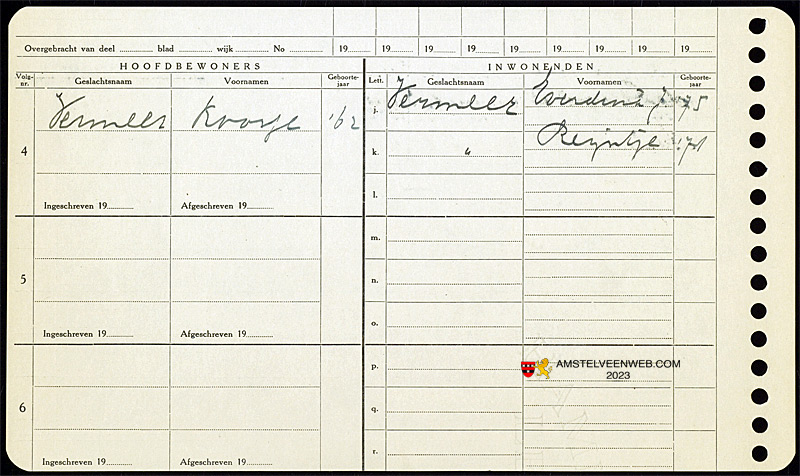 Overgebracht van deel ............ blad ............ wijk ............ No ............ 19..... 19..... 19..... 19..... 19..... 19..... 19..... 19..... 19.....
HOOFDBEWONERS INWONENDEN
Volg-nr. Geslachtsnaam Voornamen Geboorte-jaar Lett. Geslachtsnaam Voornamen Geboorte-jaar
4 Vermeer '62 j. Vermeer 75
k. " Reijntje
l.
Ingeschreven 19............ Afgeschreven 19............
m.
5 n.
o.
Ingeschreven 19............ Afgeschreven 19............
p.
AMSTELVEENWEB.COM
2023
6 q.
r.
Ingeschreven 19............ Afgeschreven 19............